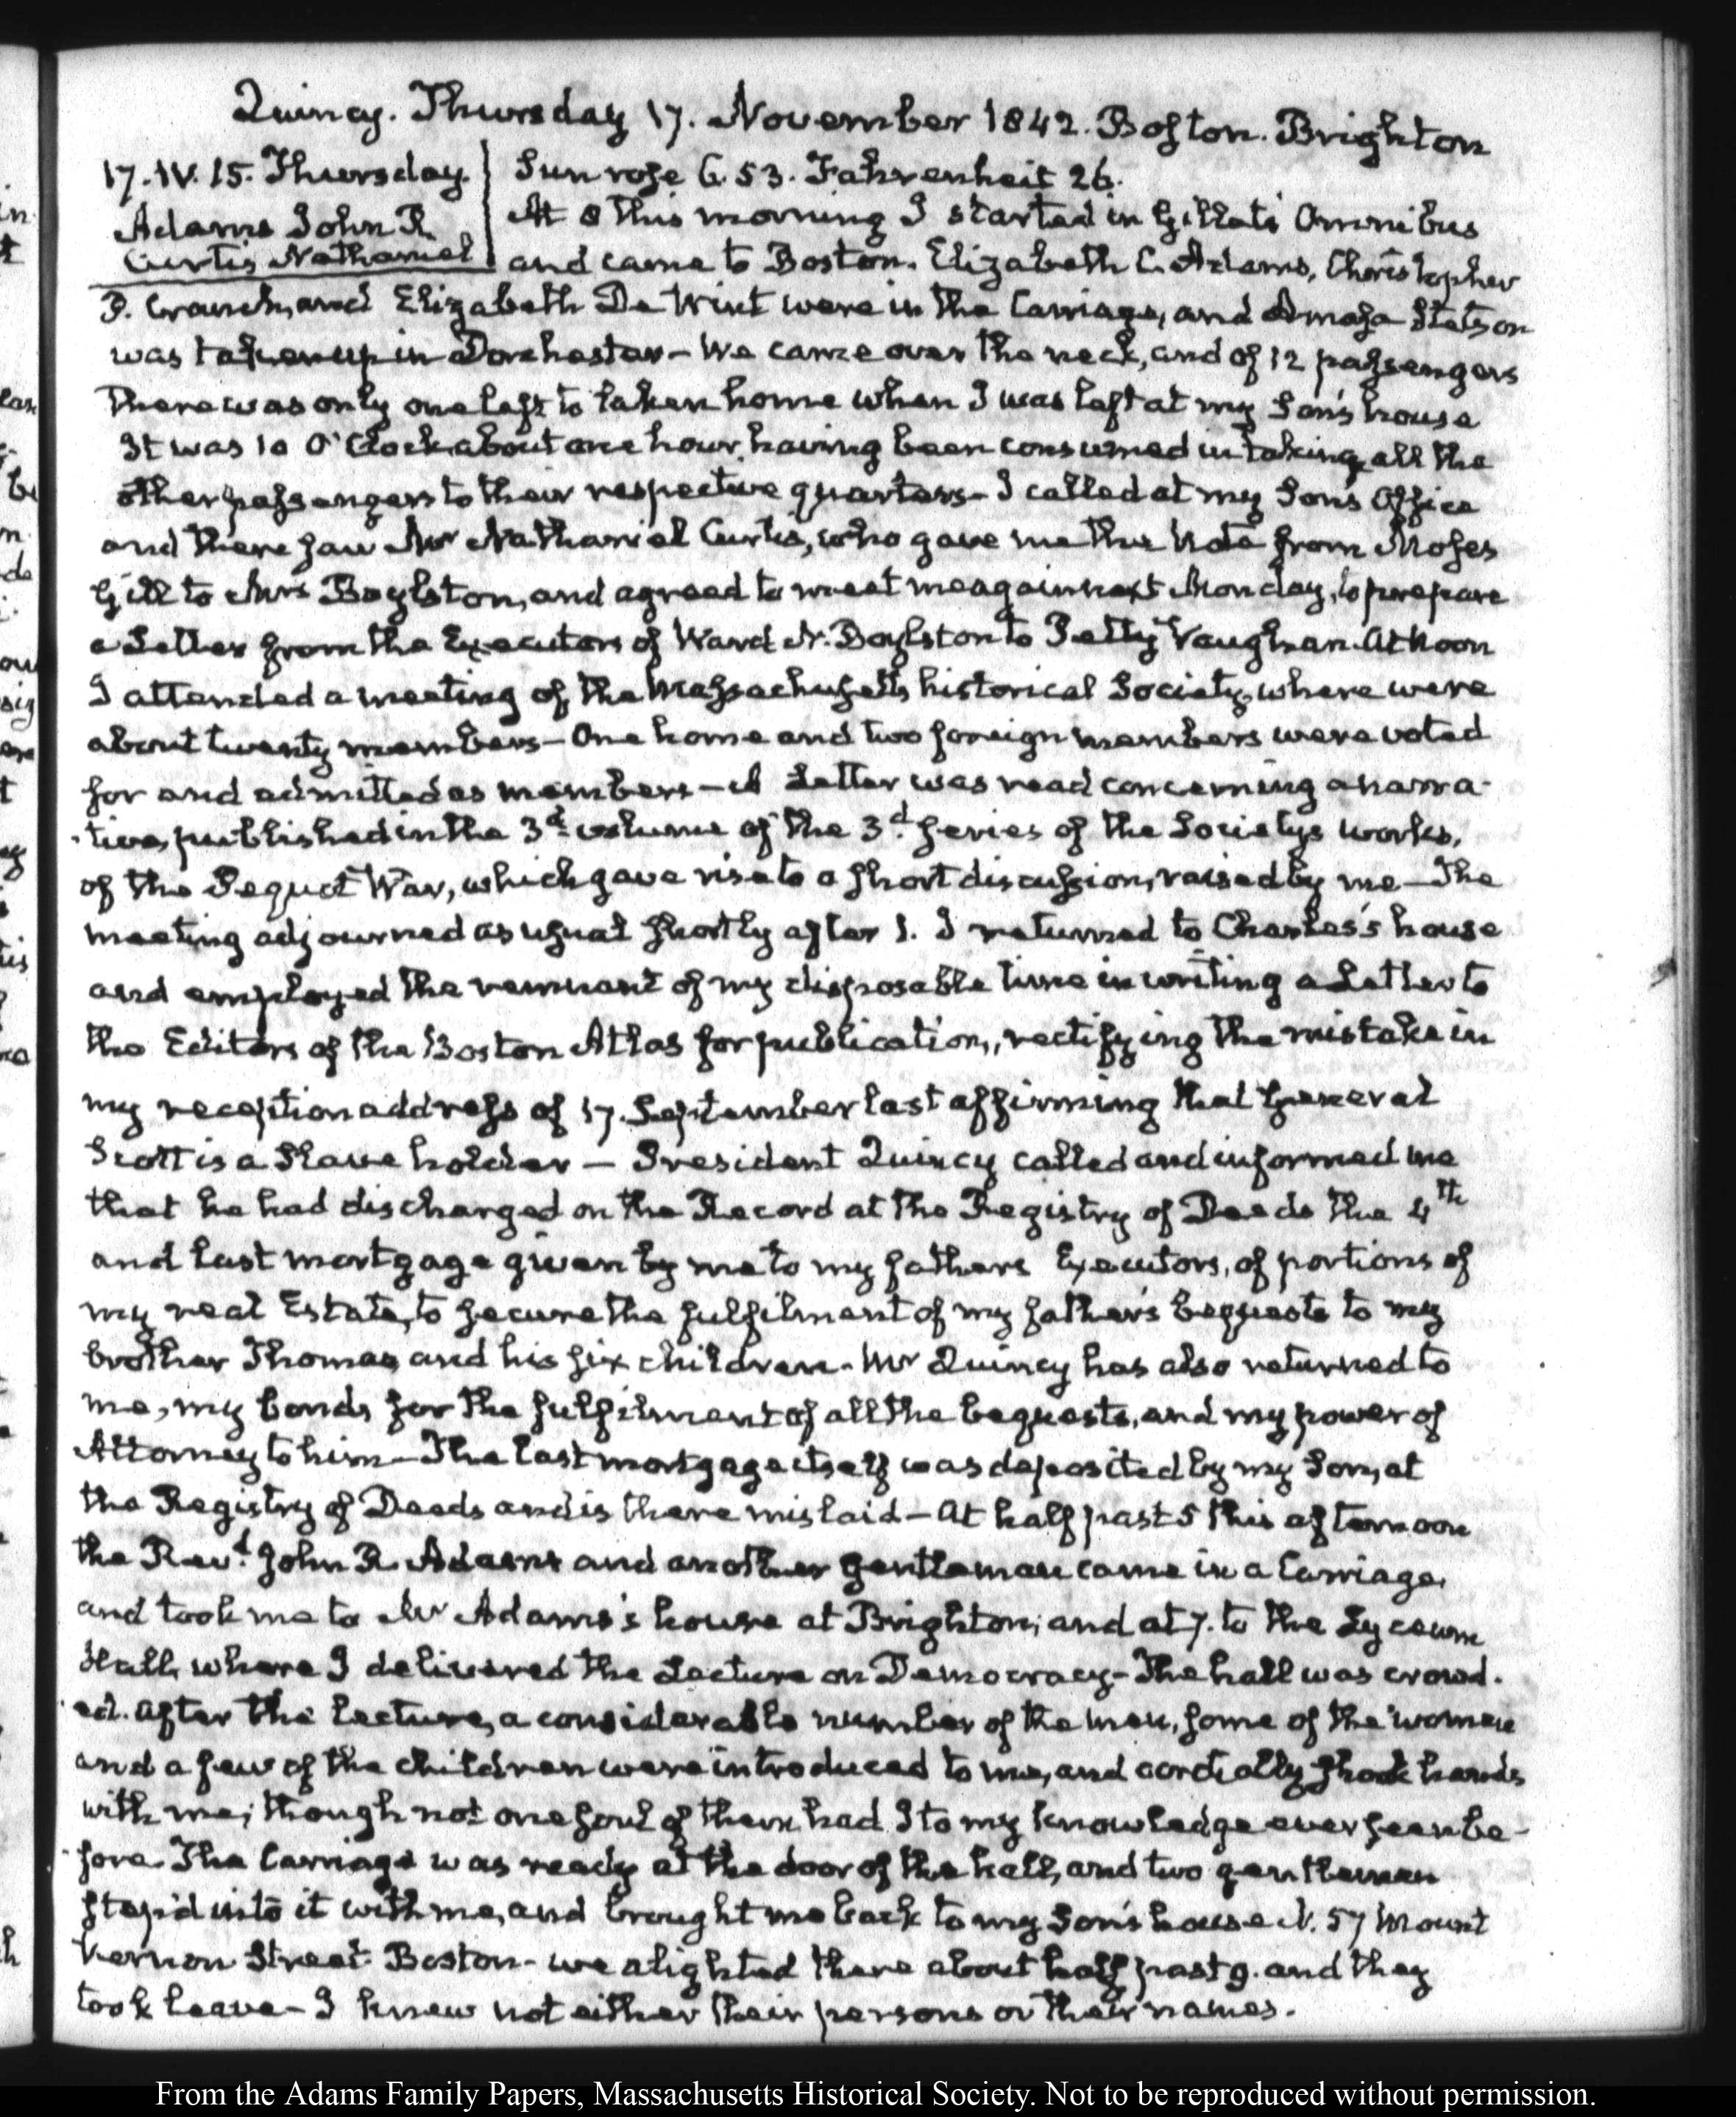 Quincy. Thursday 17. November 1842. Boston. Brighton
17. IV. 15. Thursday.
Adams John R.
Curtis Nathaniel
Sun rose 6.53. Fahrenheit 26.
At 8 this morning I started in Gillett's Omnibus
and came to Boston. Elizabeth C. Adams, Christopher
P. Cranch, and Elizabeth De Wint were in the Carriage, and Amasa Stetson
was taken up in Dorchester – We came over the neck, and of 12 passengers
there was only one left to taken home when I was left at my Son's house
It was 10 O'Clock about one hour having been consumed in taking all the
other passengers to their respective quarters – I called at my Son's Office
and there saw Mr Nathaniel Curtis, who gave me the Note from Moses
Gill to Mrs Boylston, and agreed to meet me again next Monday, to prepare
a Letter from the Executors of Ward N. Boylston to Petty Vaughan. At Noon
I attended a meeting of the Massachusetts historical Society, where were
about twenty members – One home and two foreign members were voted
for and admitted as members – A Letter was read concerning a narra-
tive, published in the 3d. volume of the 3d. series of the Societys works,
of the Pequot War, which gave rise to a short discussion, raised by me – The
meeting adjourned as usual shortly after 1. I returned to Charles's house
and employed the remnant of my disposable time in writing a Letter to
the Editors of the Boston Atlas for publication, rectifying the mistake in
my reception address of 17. September last affirming that General
Scott is a Slave holder – President Quincy called and informed me
that he had discharged on the Record at the Registry of Deeds the 4th
and last mortgage given by me to my fathers Executors, of portions of
my real Estate, to secure the fulfilment of my father's bequests to my
brother Thomas and his six children. Mr Quincy has also returned to
me, my bonds for the fulfilment of all the bequests, and my power of
Attorney to him – The last mortgage itself was deposited by my Son, at
the Registry of Deeds and is there mislaid – At half past 5 this afternoon
the Revd. John R. Adams and another gentleman came in a Carriage,
and took me to Mr Adams's house at Brighton; and at 7. to the Lyceum
Hall, where I delivered the Lecture on Democracy – The hall was crowd-
ed. After the lecture, a considerable number of the men, some of the women
and a few of the children were introduced to me, and cordially shook hands
with me; though not one soul of them had I to my knowledge ever seen be-
fore. The Carriage was ready at the door of the hall, and two gentlemen
step'd into it with me, and brought me back to my Son's house N. 57 Mount
Vernon Street Boston – we alighted there about half past 9. and they
took leave – I knew not either their persons or their names.
From the Adams Family Papers, Massachusetts Historical Society. Not to be reproduced without permission.